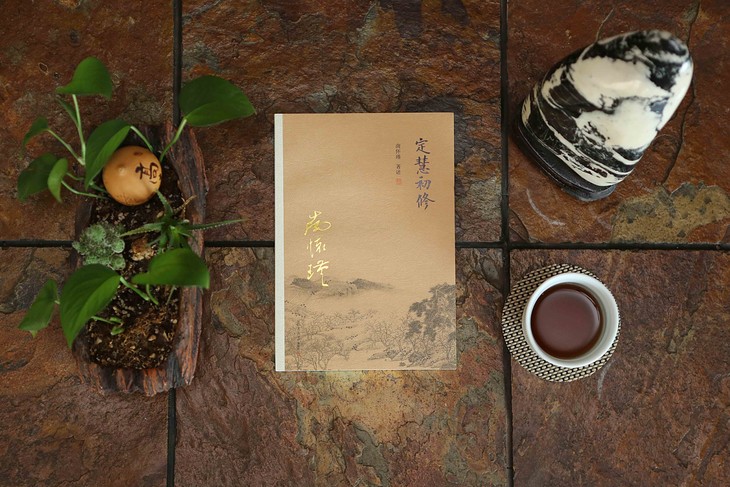 定慧初修
南怀瑾 著述
南怀瑾